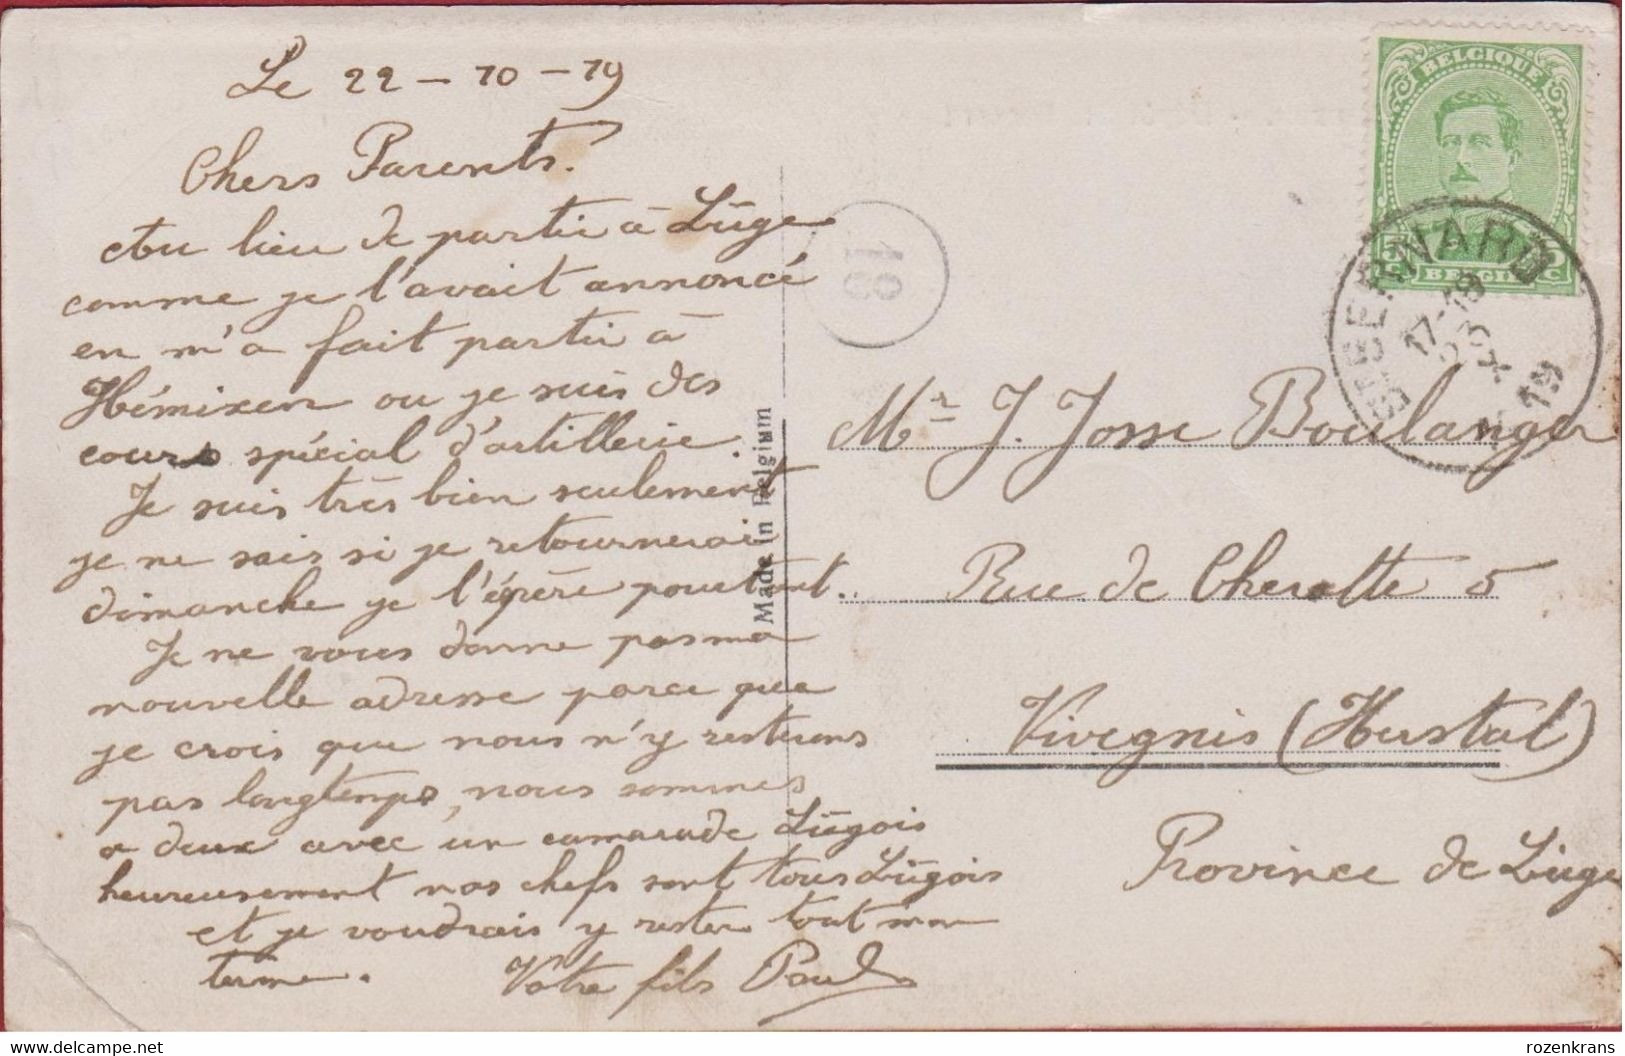 Le 22-10-19
Chers Parents.
Au lieu de partir à Liège
comme je l'avait annoncé
en m'a fait partir à
Hémixen ou je suis des
cours spécial d'artillerie.
Je suis très bien seulement
je ne sais si je retournerai
dimanche je l'éspère pourtant.
Je ne vous donne pas ma
nouvelle adresse parce que
je crois que nous n'y resterons
pas longtemps, nous sommes
a deux avec un camarade Liègois
heureusement nos chefs sont tous Liègois
et je voudrais y rester tout mon
terme. Votre fils Paul
Made in Belgium
BELGIQUE
BELGIË
17-18
23
X
19
Mr J. Josse Boulanger
Rue de Cheratte 5
Vivegnis (Herstal)
Province de Liège
rozenkrans